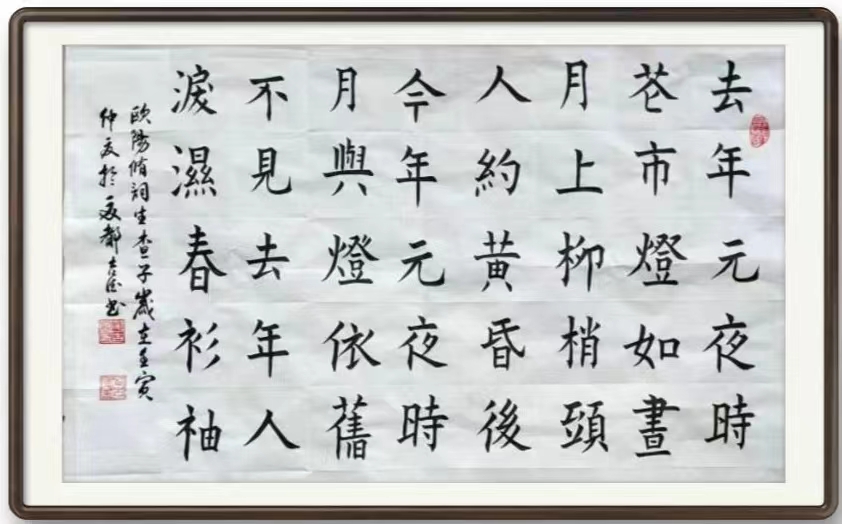 去年元夜時
花市燈如晝
月上柳梢頭
人約黄昏後
今年元夜時
月與燈依舊
不見去年人
淚濕春衫袖
歐陽脩詞生查子歲在壬寅
仲夏於夏都书